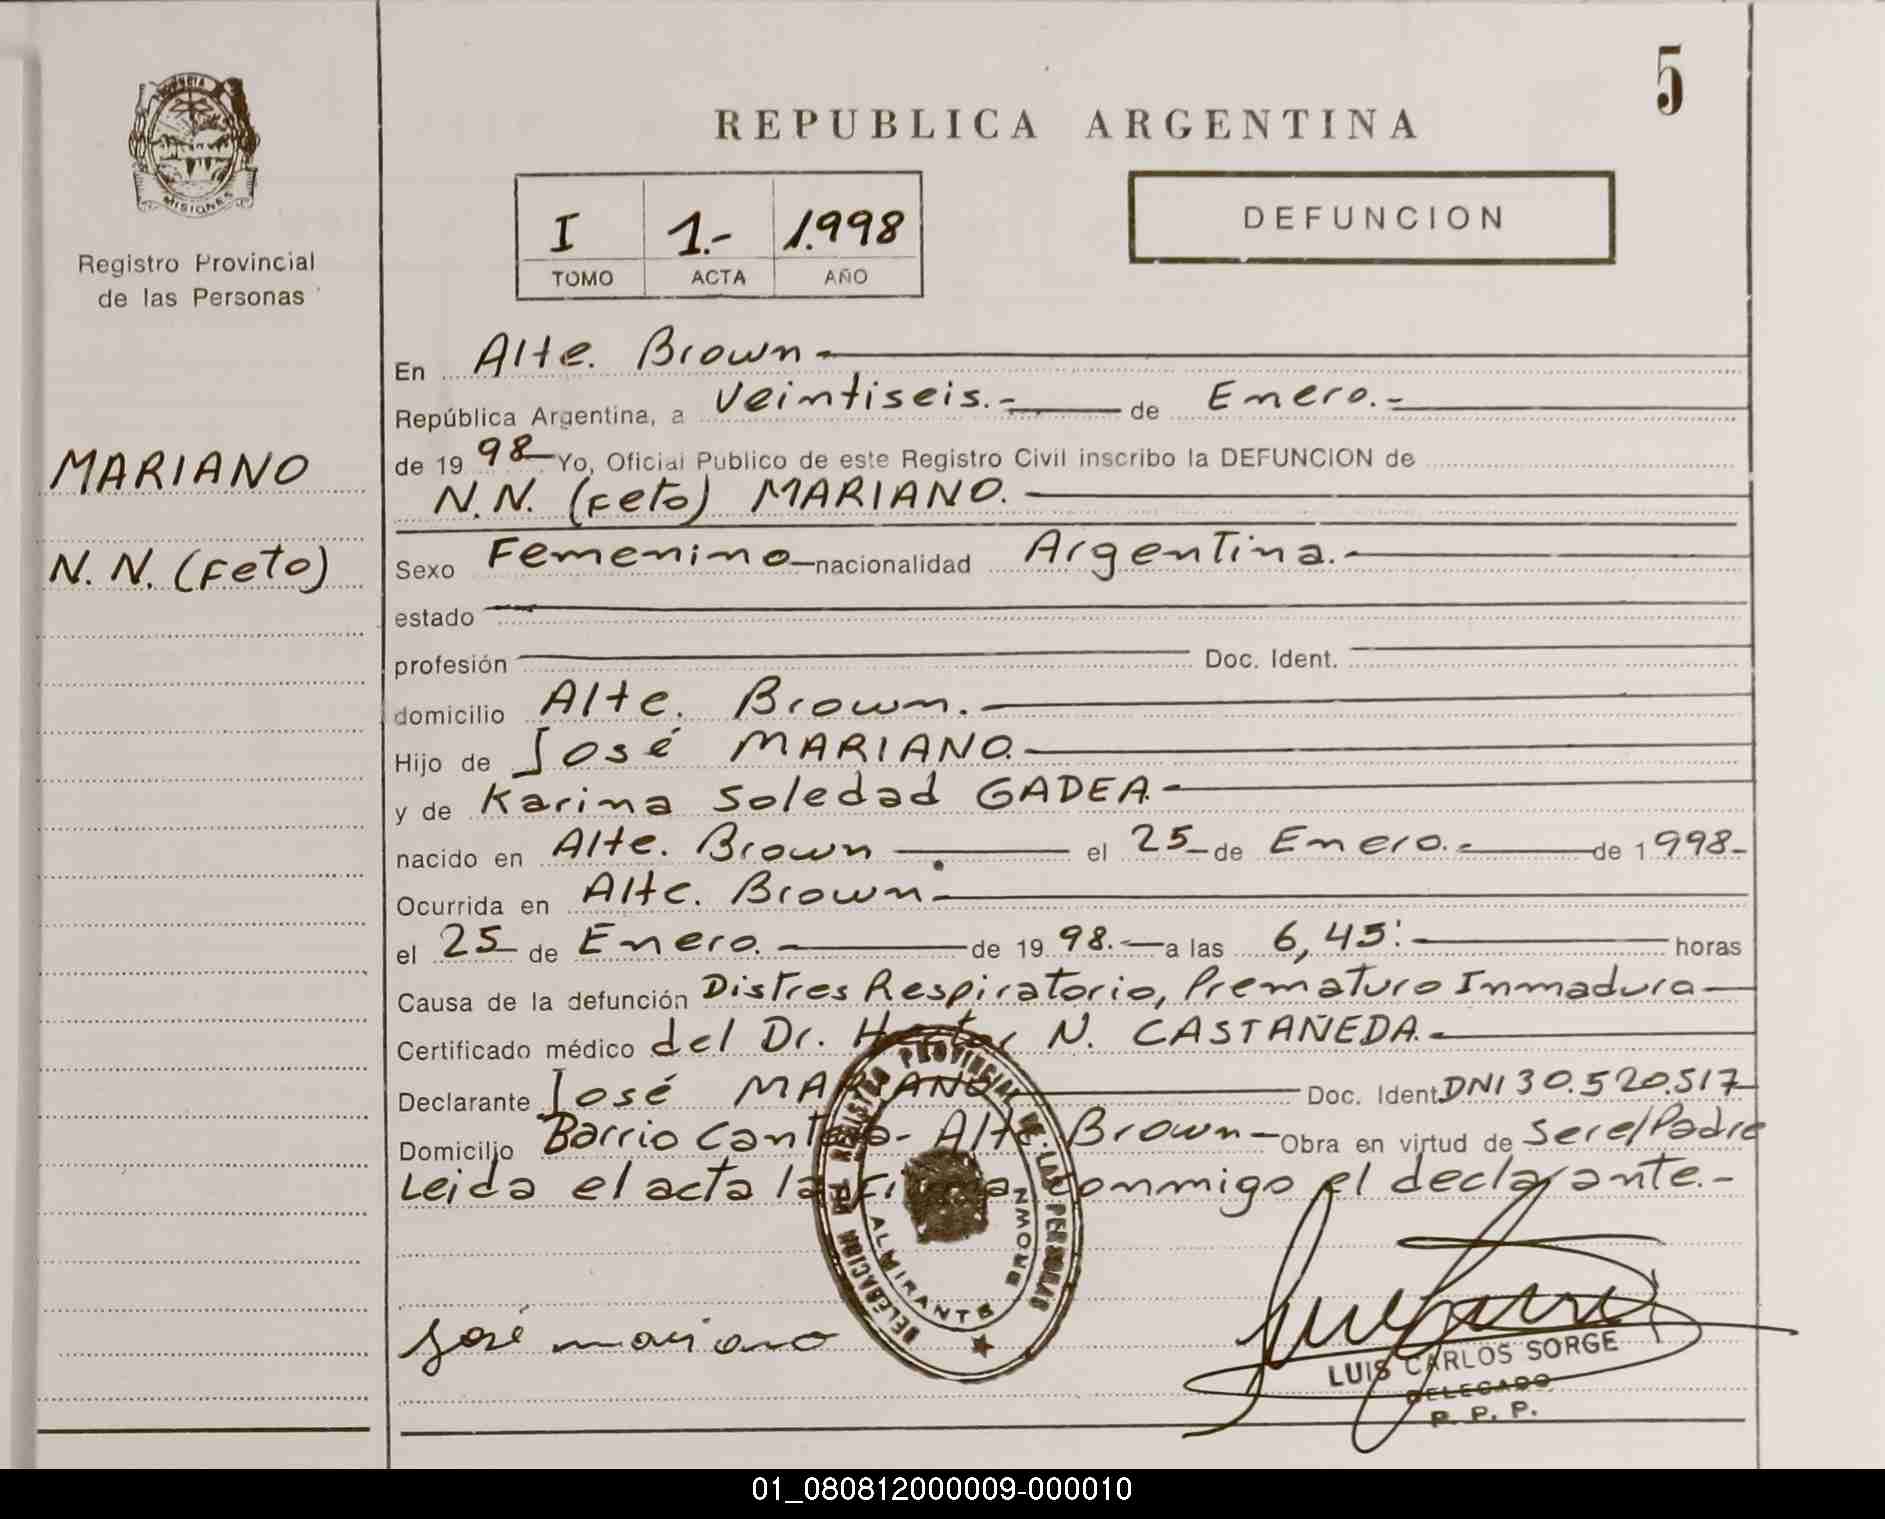 5
REPUBLICA ARGENTINA
PROVINCIA
MISIONES
Registro Provincial
de las Personas
I 1.- 1.998
TOMO ACTA AÑO
DEFUNCION
MARIANO
N.N. (Feto)
En Alte. Brown-
República Argentina, a veintiseis.- de Enero.-
de 19 98 Yo, Oficial Publico de este Registro Civil inscribo la DEFUNCION de
N.N. (Feto) MARIANO.
Sexo Femenino nacionalidad Argentina.-
estado
profesión Doc. Ident.
domicilio Alte. Brown.-
Hijo de José MARIANO.-
y de Karina Soledad GADEA-
nacido en Alte. Brown el 25 de Enero.- de 1998-
Ocurrida en Alte. Brown-
el 25 de Enero.- de 19 98.- a las 6,45: horas
Causa de la defunción Distres Respiratorio, Prematuro Inmadura
Certificado médico del Dr. Hector N. CASTAÑEDA.-
Declarante José MARIANO Doc. Ident. DNI 30.520.517
Domicilio Barrio - Alte. Brown- Obra en virtud de Serel Padre
Leida el acta la firma conmigo el declarante.-
DELEGACION REGISTRO PROVINCIAL DE LAS PERSONAS
ALMIRANTE BROWN
José mariano
LUIS CARLOS SORGE
DELEGADO
R. P. P.
01_080812000009-000010